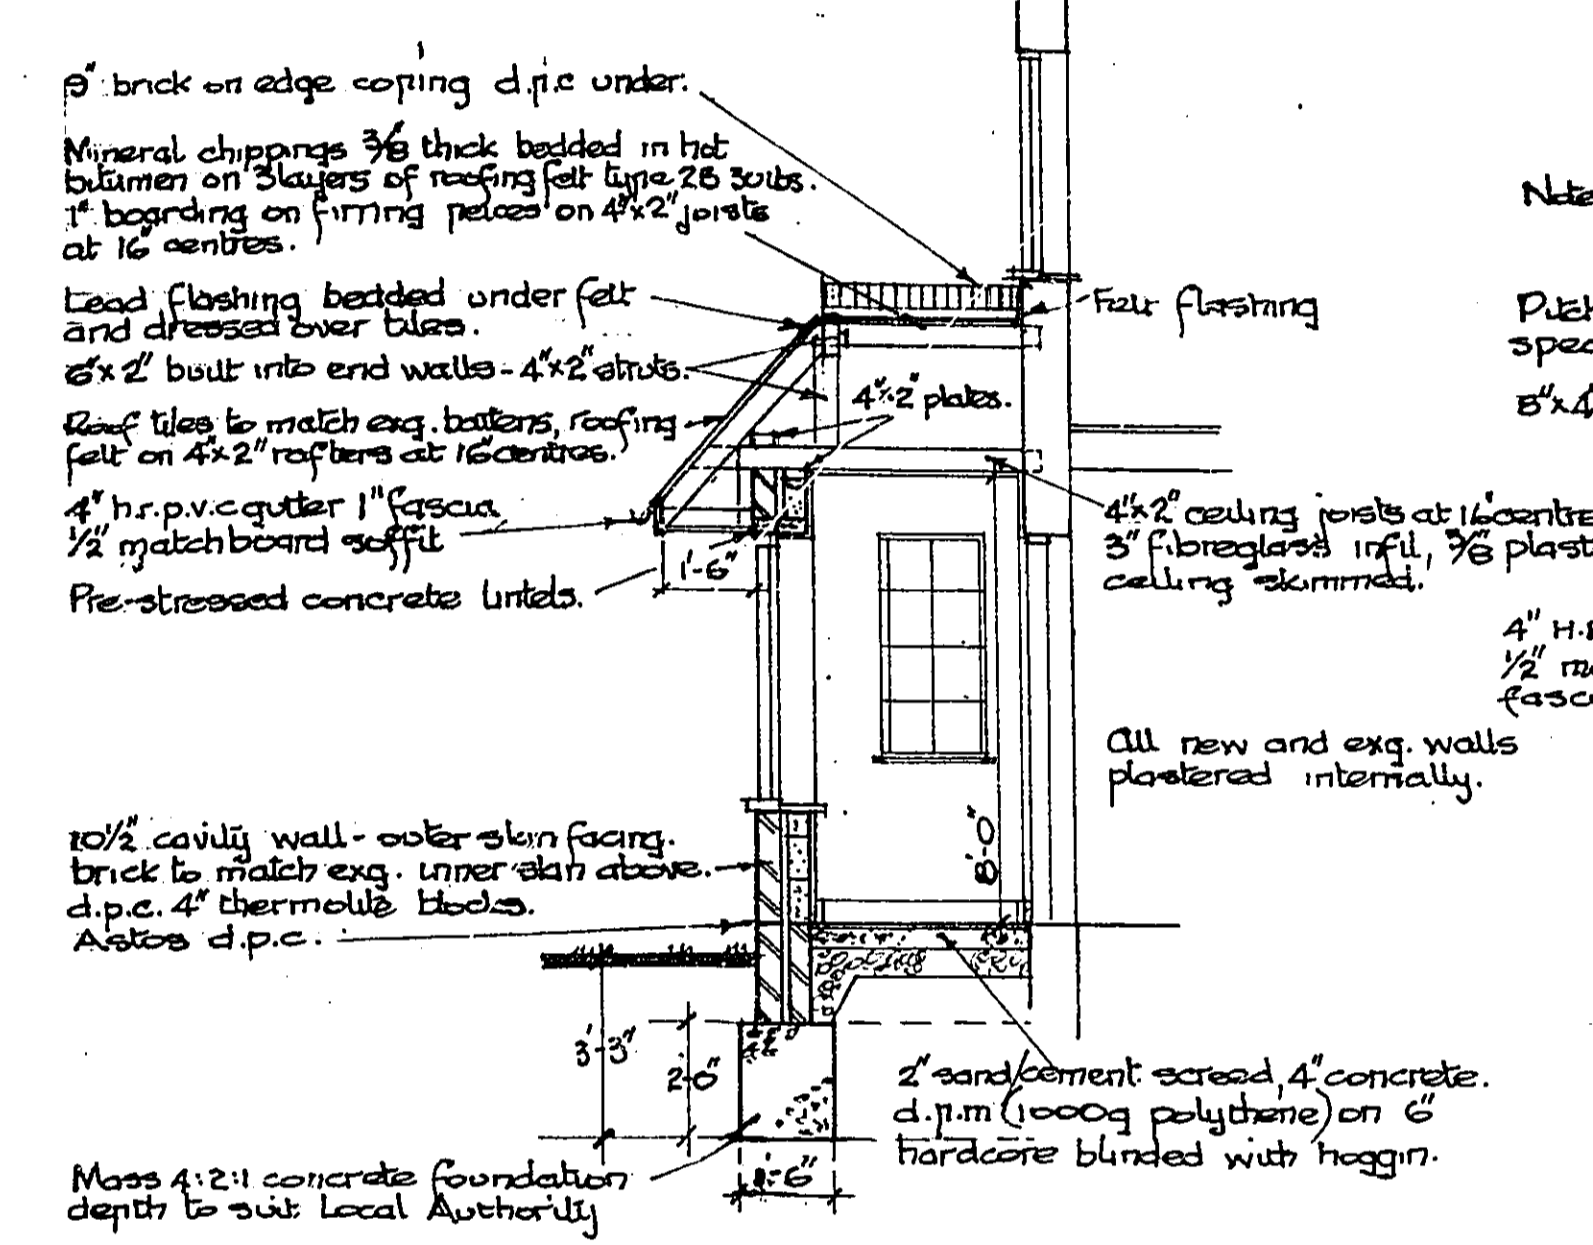 9" brick on edge coping d.p.c under.
Mineral chippings 3/8" thick bedded in hot
bitumen on 3 layers of roofing felt type 2B 30lbs.
1" boarding on firring peices on 4"x2" joists
at 16" centres.
Lead flashing bedded under felt
and dressed over tiles.
6"x 2" built into end walls - 4"x2" struts.
Roof tiles to match exg. battens, roofing
felt on 4"x 2" rafters at 16" centres.
4" h.r.p.v.c gutter 1" fascia
1/2" matchboard soffit
Pre-stressed concrete lintels.
10 1/2" cavity wall - outer skin facing.
brick to match exg. inner skin above.
d.p.c. 4" thermolite blocks.
Astos d.p.c.
Mass 4:2:1 concrete foundation
depth to suit Local Authority
Felt flashing
4"x2" plates.
1'-6"
8'-0"
3'-3"
2'-0"
1'-6"
4"x 2" ceiling joists at 16" centre
3" fibreglass infil, 3/8" plast
ceiling skimmed.
All new and exg. walls
plastered internally.
2" sand/cement screed, 4" concrete.
d.p.m (1000g polythene) on 6"
hardcore blinded with hoggin.
Note
Pitch
spec
8"x 4
4" H.
1/2" m
fasc